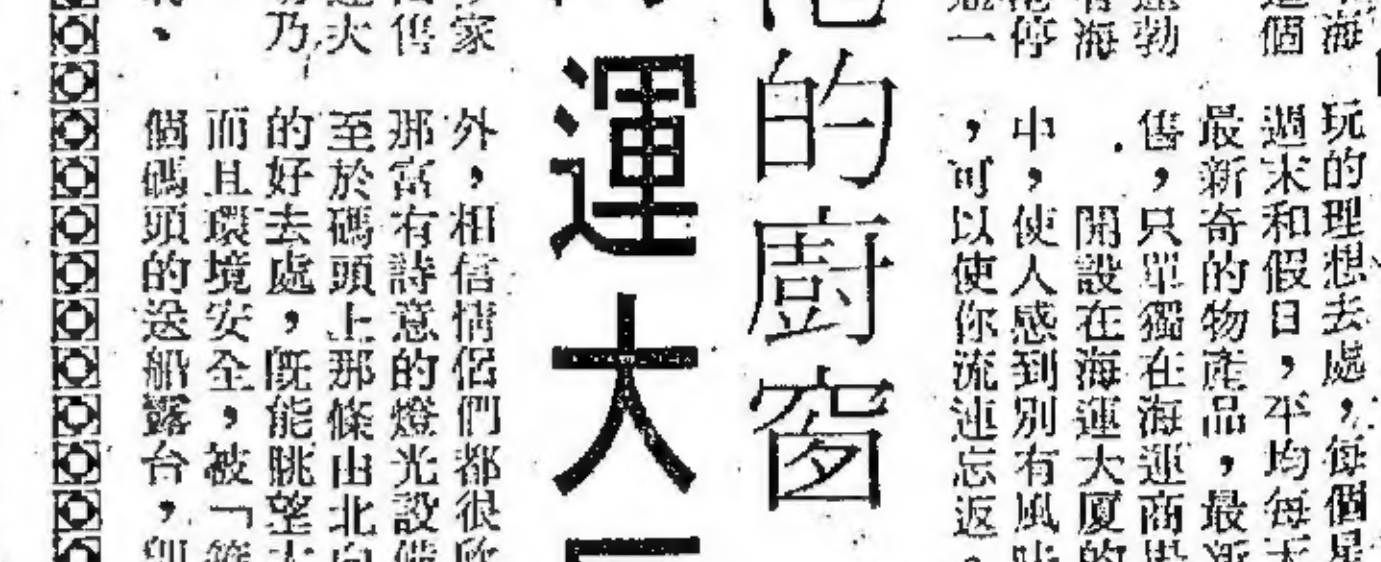 海 玩的理想去處，每個星
個 週末和假日，平均每天
最新奇的物產品，最新
勃 售，只單獨在海運商場
海 開設在海運大廈的
停 中，使人感到別有風味
一 ，可以使你流連忘返。
的廚窗
運大
家 外，相信情侶們都很欣
售 那富有詩意的燈光設備
火 至於碼頭上那條由北向
乃 的好去處，既能眺望大
而且環境安全，被「管
、 個碼頭的送船露台，